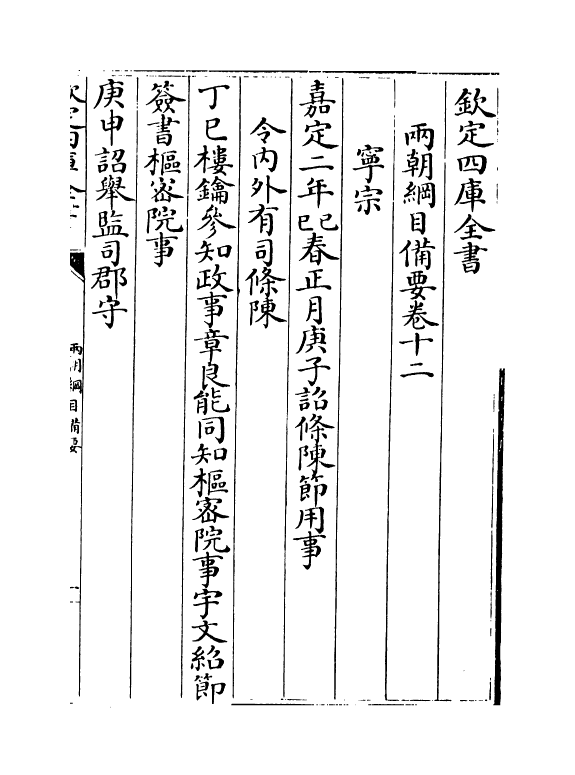 欽定四庫全書
兩朝綱目備要卷十二
寧宗
嘉定二年己巳春正月庚子詔條陳節用事
令内外有司條陳
丁巳樓鑰參知政事章良能同知樞密院事宇文紹節
簽書樞密院事
庚申詔舉監司郡守
兩朝綱目備要
一